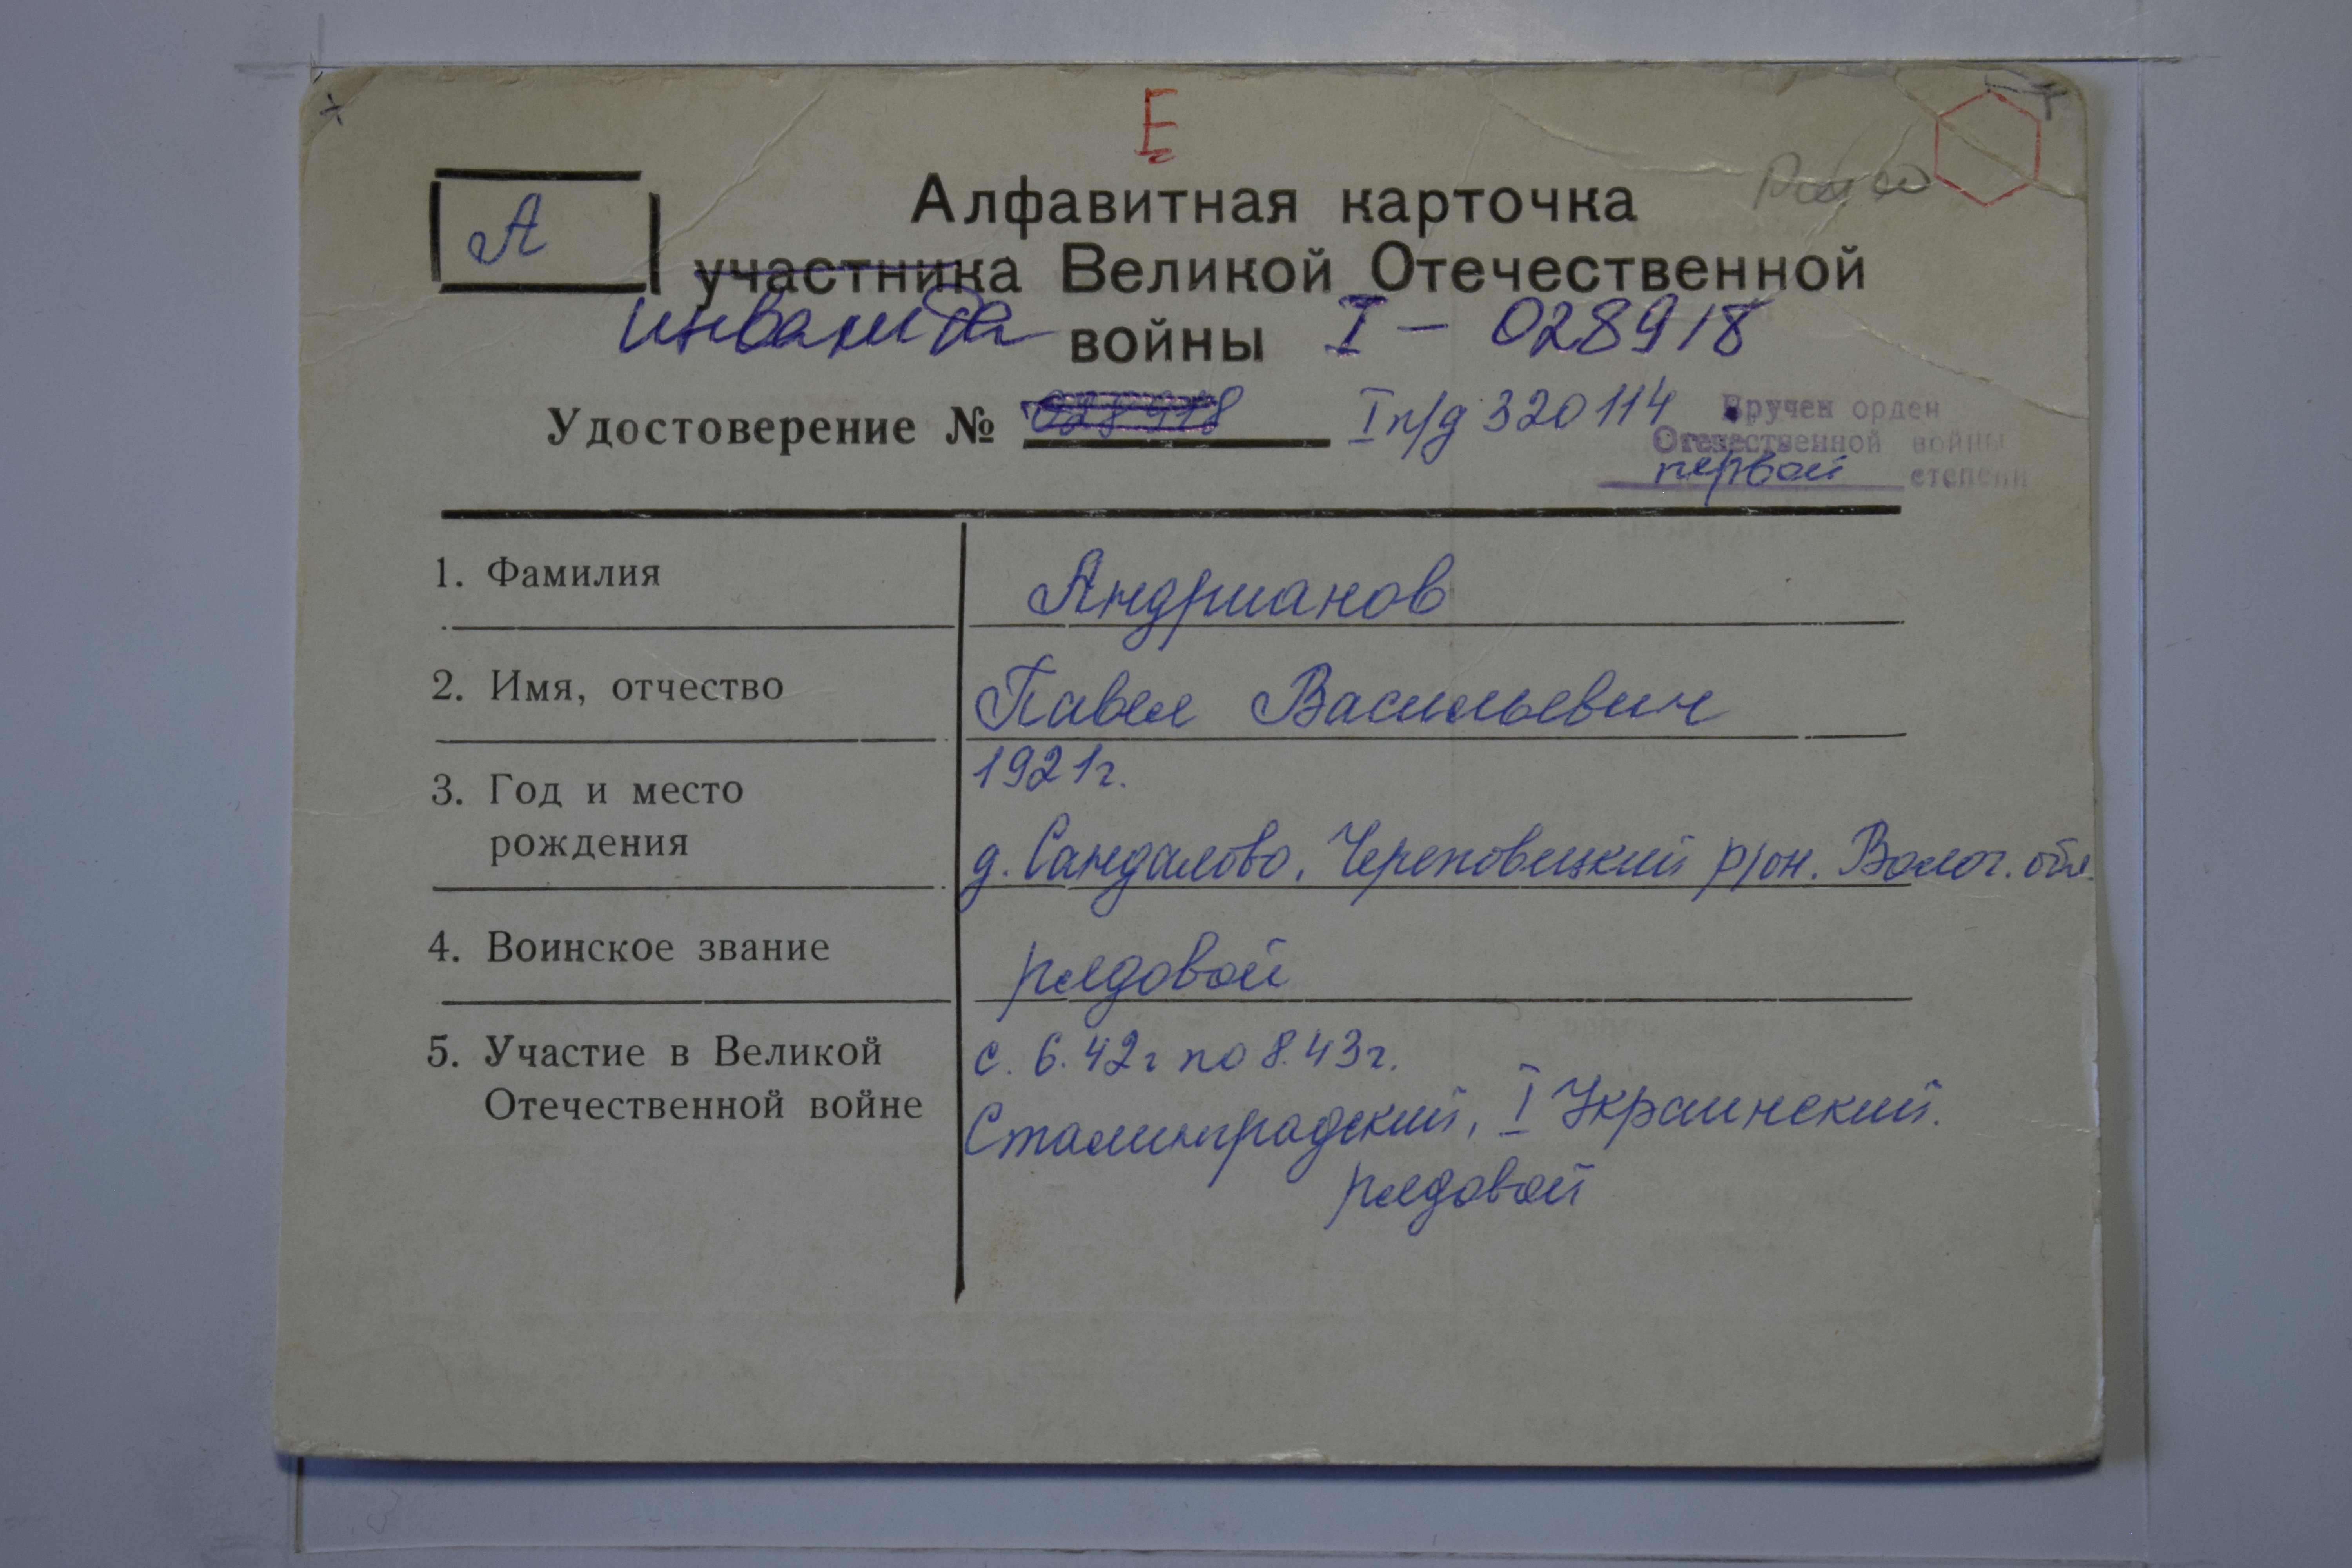 Е
А
Алфавитная карточка
участника Великой Отечественной
инвалида войны I - 028918
Удостоверение № 028918 I п/д 320114
Вручен орден
Отечественной войны
первой степени
1. Фамилия Андрианов
2. Имя, отчество Павел Васильевич
3. Год и место 1921г.
рождения д. Сандалово, Череповецкий р/он. Волог. обл.
4. Воинское звание рядовой
5. Участие в Великой с. 6.42г по 8.43г.
Отечественной войне Сталинградский, I Украинский.
рядовой